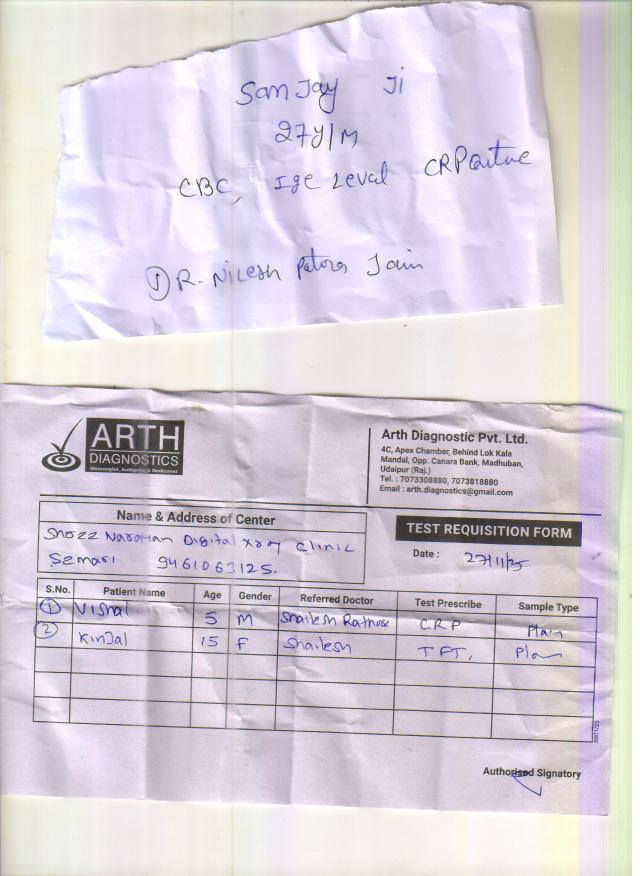 SanJay Ji
27Y/M
CBC, Ige Leval CRP
DR. Nilesh Jain
ARTH
DIAGNOSTICS
Meaningful, Authentic & Dedicated
Arth Diagnostic Pvt. Ltd.
4C, Apex Chamber, Behind Lok Kala
Mandal, Opp. Canara Bank, Madhuban,
Udaipur (Raj.)
Tel. : 7073308880, 7073818880
Email : arth.diagnostics@gmail.com
Name & Address of Center
Narayan Digital Xray Clinic
Semari 9461063125.
TEST REQUISITION FORM
Date : 27/11/25
S.No. Patient Name Age Gender Referred Doctor Test Prescribe Sample Type
1 Vishal 5 M Shailesh CRP Plain
2 Kinjal 15 F Shailesh TFT, Plain
Authorised Signatory